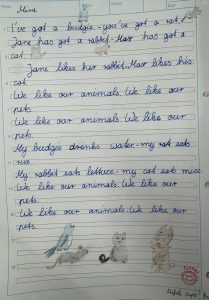 Mina
I've got a budgie - you've got a rat!
Jane has got a rabbit. has got a
cat.
Jane likes her rabbit. likes his
cat.
We like our animals. We like our
pets.
We like our animals. We like our
pets.
My budgie drinks water - my rat eats
rice.
My rabbit eats lettuce - my cat eats mice.
We like our animals. We like our
pets.
We like our animals. We like our
pets.